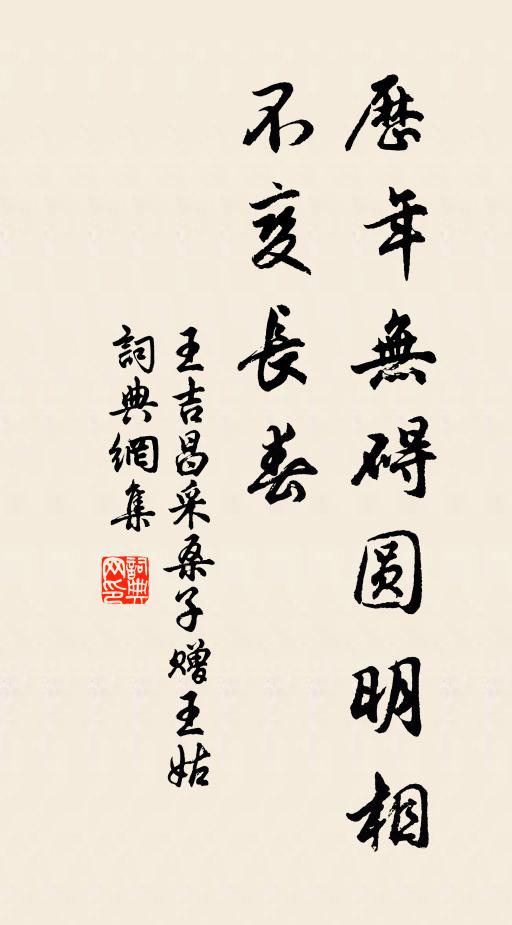 歷年無碍圆明相
不变長春
王吉昌采桑子赠王姑
詞典網集
詞典网印